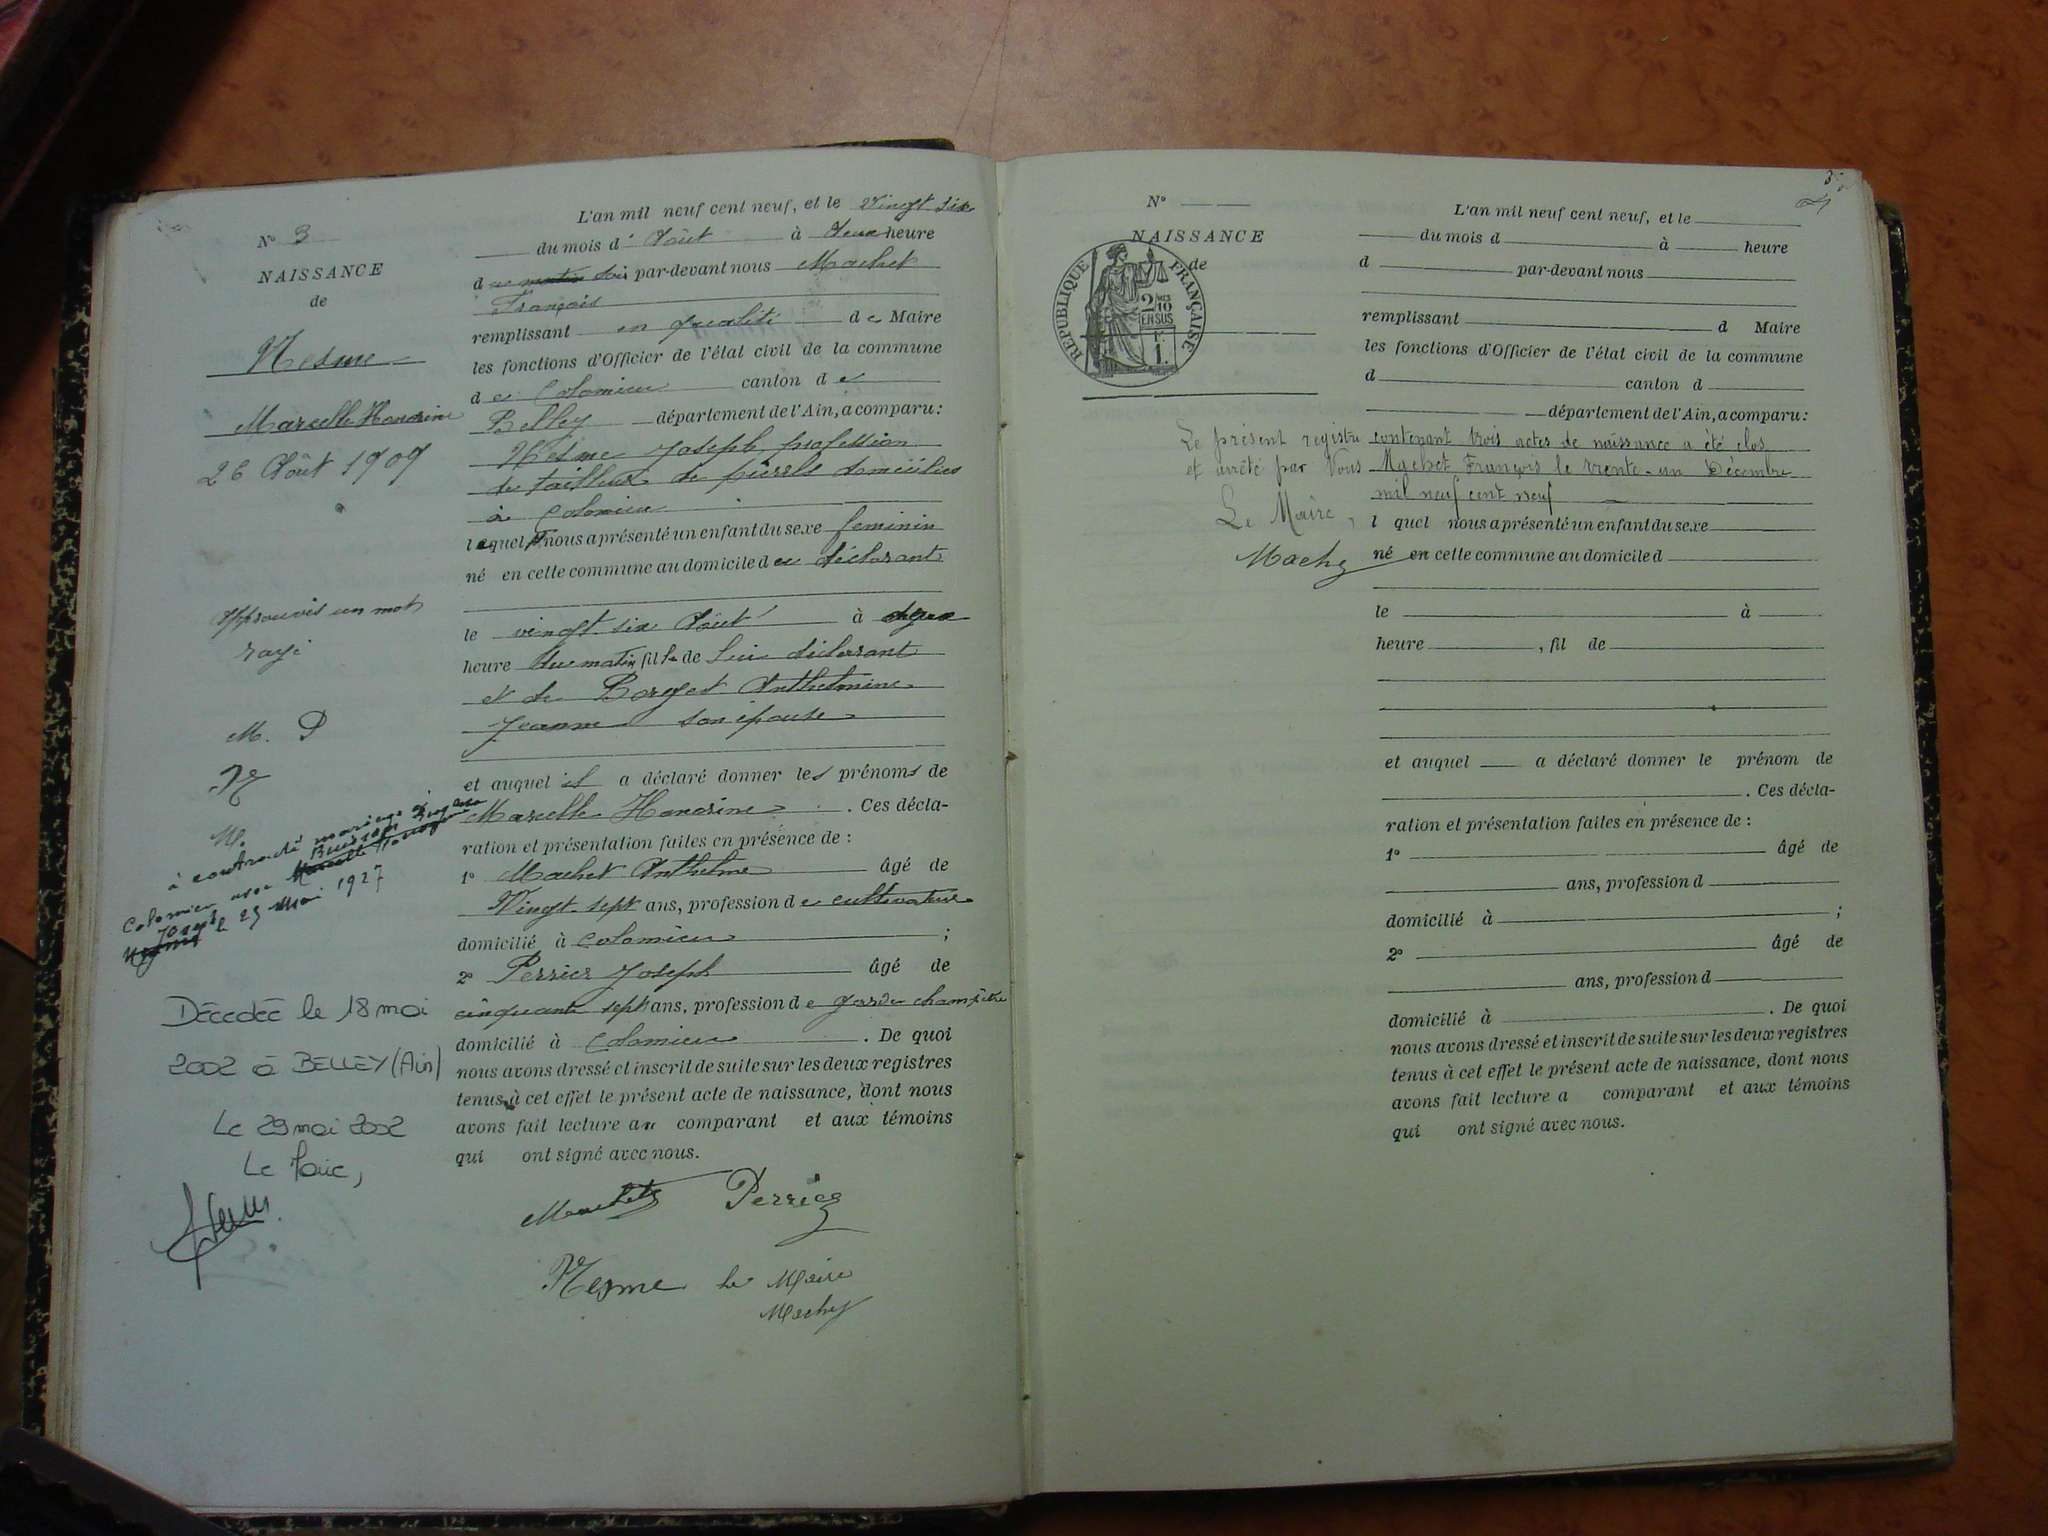 N° 3
NAISSANCE
de
Nesme
Marcelle Honorine
26 Août 1909
approuvé un mot
rayé
M. P
N
M.
à contracté mariage à
Colomieu avec Buisson
Marcelle
Joseph le 23 Mai 1927
Décédée le 18 mai
2002 à BELLEY (Ain)
Le 29 mai 2002
Le Maire,
L'an mil neuf cent neuf, et le Vingt six
du mois d' Août à deux heure
d u matin soir par-devant nous Machet
François
remplissant en qualité de Maire
les fonctions d'Officier de l'état civil de la commune
de Colomieu canton de
Belley département de l'Ain, a comparu:
Nesme Joseph profession
de tailleur de pierre domicilié
à Colomieu
lequel nous a présenté un enfant du sexe feminin
né en cette commune au domicile du déclarant
le vingt six Août à
heure du matin fille de lui déclarant
et de Borget Anthelmine
Jeanne son épouse
et auquel il a déclaré donner les prénoms de
Marcelle Honorine . Ces décla-
ration et présentation faites en présence de :
1° Machet Anthelme âgé de
Vingt-sept ans, profession de cultivateur
domicilié à Colomieu ;
2° Perrier Joseph âgé de
cinquante sept ans, profession de garde champêtre
domicilié à Colomieu . De quoi
nous avons dressé et inscrit de suite sur les deux registres
tenus à cet effet le présent acte de naissance, dont nous
avons fait lecture au comparant et aux témoins
qui ont signé avec nous.
Machet Perrier
Nesme le Maire
Machet
3
N°
NAISSANCE
de
RÉPUBLIQUE FRANÇAISE
2/10 EN SUS
1F
L'an mil neuf cent neuf, et le
du mois d à heure
d par-devant nous
remplissant d Maire
les fonctions d'Officier de l'état civil de la commune
d canton d
département de l'Ain, a comparu:
Le présent registre contenant trois actes de naissance a été clos
et arrêté par Nous Machet François le trente-un Décembre
mil neuf cent neuf
Le Maire,
Machet
l quel nous a présenté un enfant du sexe
né en cette commune au domicile d
le à
heure , fil de
et auquel a déclaré donner le prénom de
. Ces décla-
ration et présentation faites en présence de :
1° âgé de
ans, profession d
domicilié à ;
2° âgé de
ans, profession d
domicilié à . De quoi
nous avons dressé et inscrit de suite sur les deux registres
tenus à cet effet le présent acte de naissance, dont nous
avons fait lecture a comparant et aux témoins
qui ont signé avec nous.